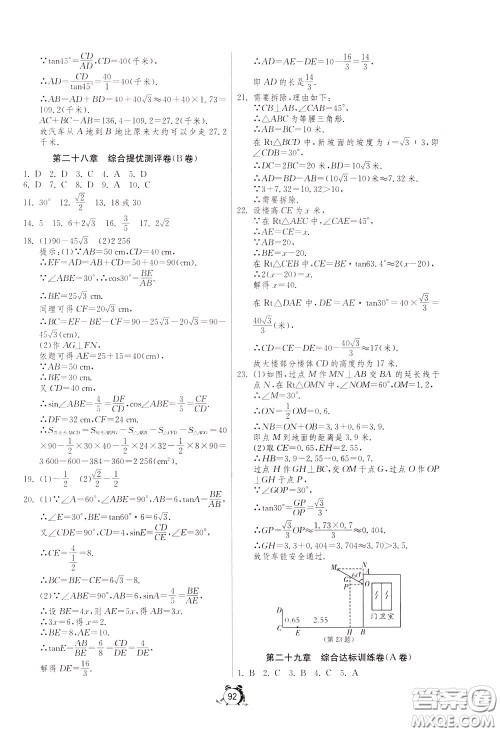 ∵tan45°=CD/AD,CD=40(千米),
∴AD=CD/tan45°=40/1=40(千米).
∴AB=AD+BD=40+40√3≈40+40×1.73=
109.2(千米).
AC+BC-AB=136.4-109.2=27.2(千米).
故汽车从A地到B地比原来大约可以少走27.2
千米.
第二十八章 综合提优测评卷(B卷)
1. D 2. D 3. C 4. A 5. D
6. D 7. C 8. D 9. C 10. D
11. 30° 12. √2/2 13. 18或30
14. 5 15. 6+2√3 16. 3/5 17. 4/3
18. (1)90-45√3 (2)2 256
提示:(1)∵AB=50cm,CD=40cm,
∴EF=AD=AB+CD=50+40=90(cm).
∵∠ABE=30°,∴cos30°=BE/AB.
∴BE=25√3 cm.
同理可得CF=20√3 cm.
∴BC=EF-BE-CF=90-25√3-20√3=90-
45√3(cm).
(2)作AG⊥FN,
依题可得AE=25+15=40(cm).
∵AB=50,
∴BE=30 cm.
又CD=40,
∴sin∠ABE=4/5=DF/CD,cos∠ABE=3/5=CF/CD.
∴DF=32 cm,CF=24 cm.
40
×90-1/2×30×40-1/2×24×32-1/2×8×90=
3 600-600-384-360=2 256(cm²).
19. (1)-1/2 (2)√2/2-1
20. (1)∵∠A=60°,∠ABE=90°,AB=6,tanA=BE/AB,
∴∠E=30°,BE=tan60°·6=6√3.
又∠CDE=90°,CD=4,sinE=CD/CE,
∠E=30°,
∴CE=4/(1/2)=8.
∴BC=BE-CE=6√3-8.
(2)∵∠ABE=90°,AB=6,sinA=4/5=BE/AE,
∴设BE=4x,则AE=5x,得AB=3x.
∴3x=6,得x=2.
∴BE=8,AE=10.
∴tanE=AB/BE=6/8=CD/DE=4/DE.
解得DE=16/3.
∴AD=AE-DE=10-16/3=14/3.
即AD的长是14/3.
21. 需要拆除,理由如下:
∵CB⊥AB,∠CAB=45°,
∴△ABC为等腰三角形.
∴AB=BC=10米.
在Rt△BCD中,新坡面的坡度为i=1∶√3,即
∠CDB=30°,
∴DC=2BC=20米,BD=10√3米.
∴AD=BD-AB=(10√3-10)米≈7.32米.
∵3+7.32=10.32>10,
∴需要拆除.
22. 设楼高CE为x米,
∵在Rt△AEC中,∠CAE=45°,
∴AE=CE=x.
∵AB=20,
∴BE=x-20.
在Rt△CEB中,CE=BE·tan63.4°≈2(x-20),
∴2(x-20)=x.
解得x=40.
在Rt△DAE中,DE=AE·tan30°=40×√3/3=
40√3/3(米),
∴CD=CE-DE=40-40√3/3≈17(米).
故大楼部分楼体CD的高度约为17米.
23. (1)如图,过点M作MN⊥AB交BA的延长线于
点N,在Rt△OMN中,∠NOM=60°,OM=1.2,
∴∠M=30°.
∴ON=1/2OM=0.6.
∴NB=ON+OB=3.3+0.6=3.9.
即点M到地面的距离是3.9米.
(2)取CE=0.65,EH=2.55,
∴HB=3.9-2.55-0.65=0.7.
过点H作GH⊥BC,交OM于点G,过点O作
OP⊥GH于点P.
∵∠GOP=30°,
∴tan30°=GP/OP=√3/3.
∴GP=√3/3OP≈1.73×0.7/3≈0.404.
∴GH=3.3+0.404=3.704≈3.70>3.5.
故货车能安全通过.
N
M
A
G
O
P
门卫室
0.65
2.55
C
E
H
B
(第23题)
第二十九章 综合达标训练卷(A卷)
1. B 2. C 3. B 4. C 5. A
92
答案圈
MXQE.COM